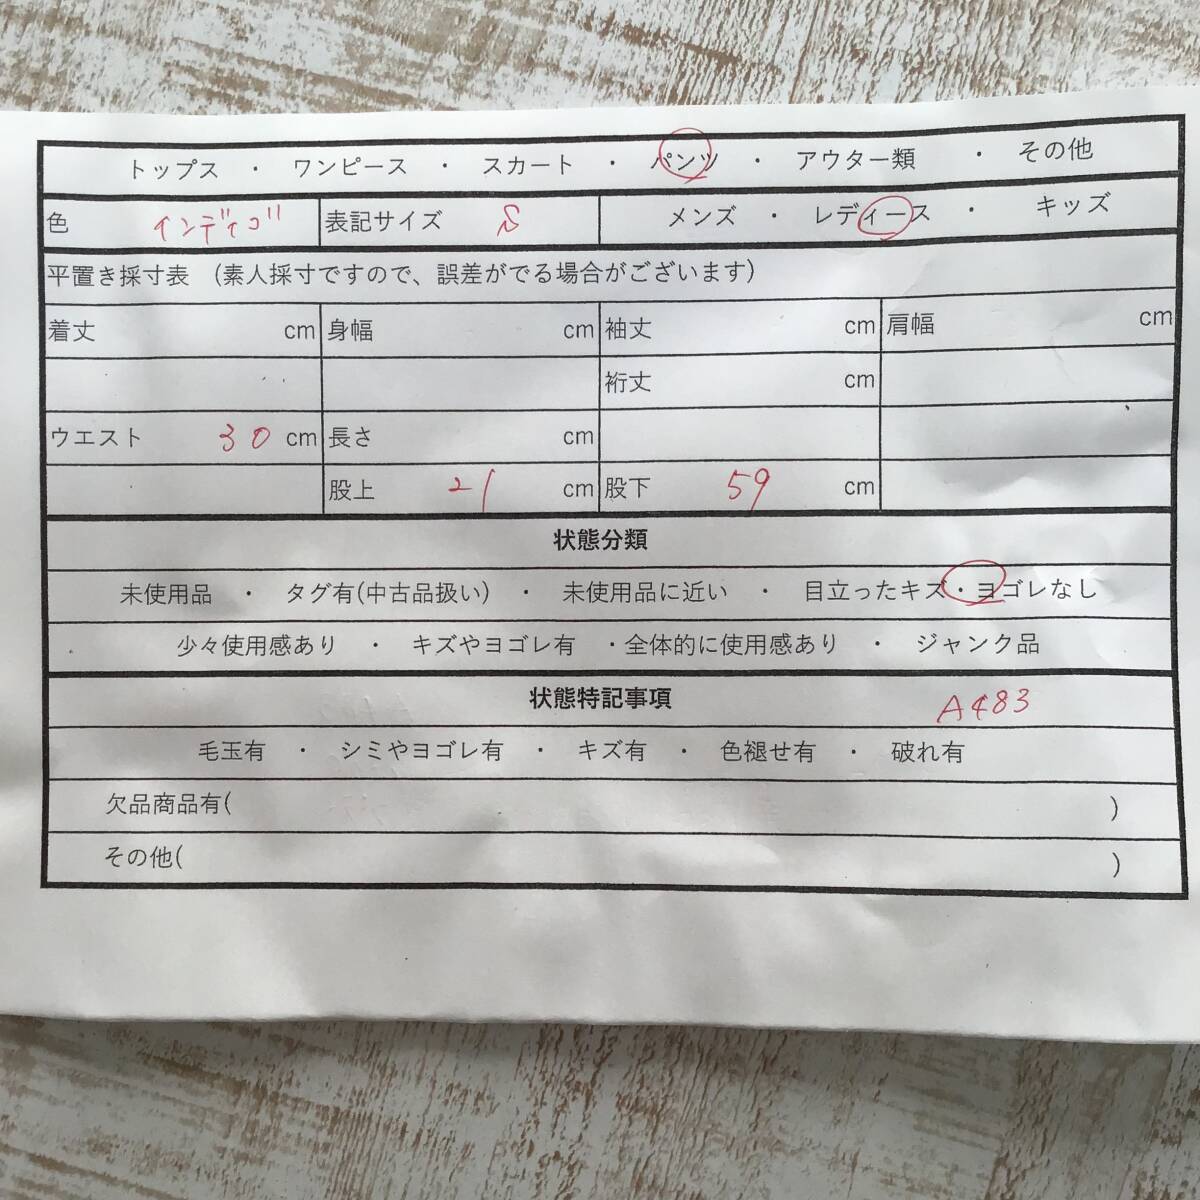 トップス ・ ワンピース ・ スカート ・ パンツ ・ アウター類 ・ その他
色 インディゴ 表記サイズ S メンズ ・ レディース ・ キッズ
平置き採寸表 (素人採寸ですので、誤差がでる場合がございます)
着丈 cm 身幅 cm 袖丈 cm 肩幅 cm
裄丈 cm
ウエスト 30 cm 長さ cm
股上 21 cm 股下 59 cm
状態分類
未使用品 ・ タグ有(中古品扱い) ・ 未使用品に近い ・ 目立ったキズ・ヨゴレなし
少々使用感あり ・ キズやヨゴレ有 ・全体的に使用感あり ・ ジャンク品
状態特記事項 A483
毛玉有 ・ シミやヨゴレ有 ・ キズ有 ・ 色褪せ有 ・ 破れ有
欠品商品有( )
その他( )